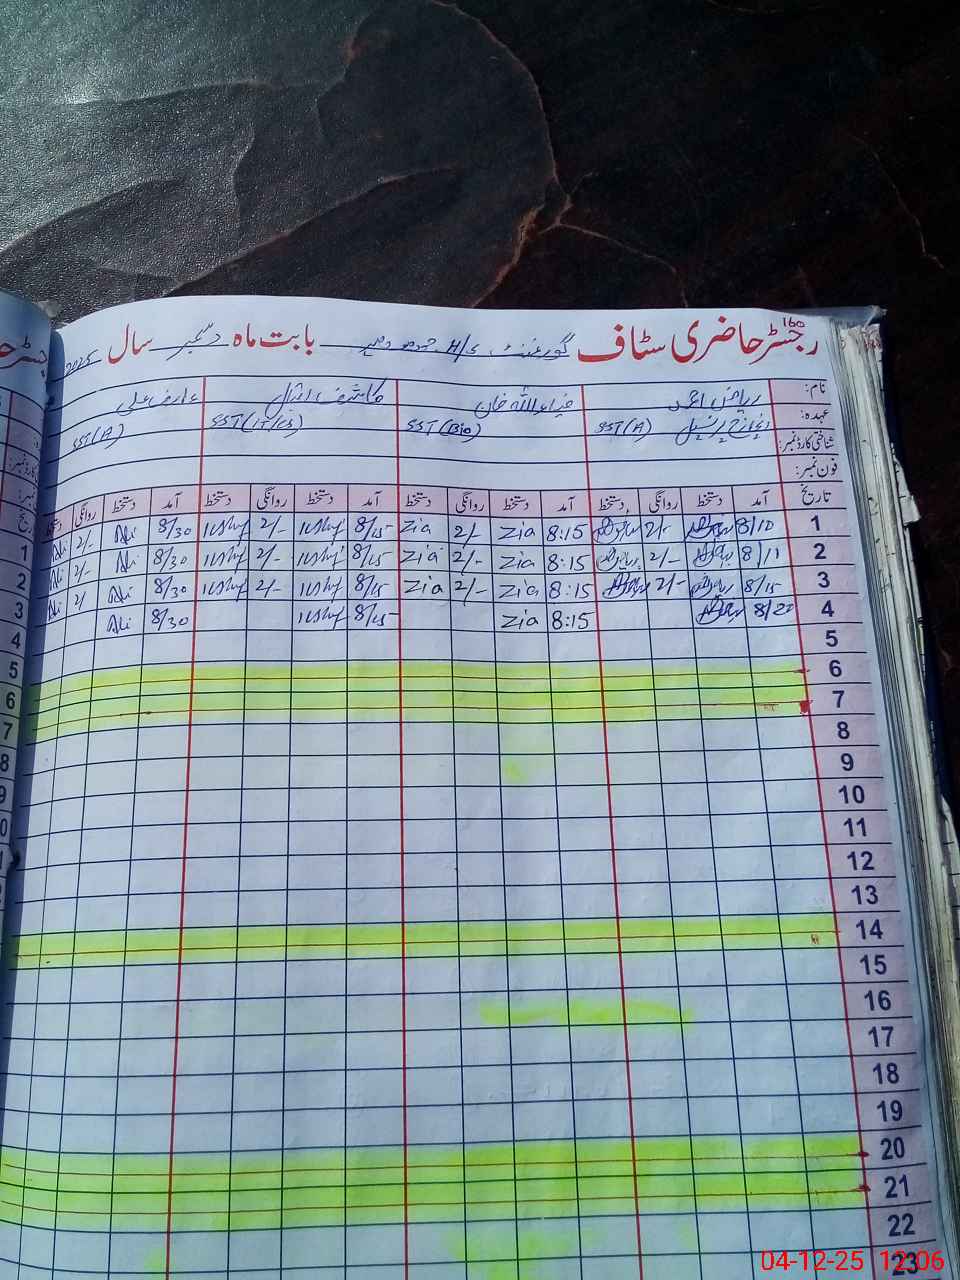 160
رجسٹر حاضری سٹاف گورنمنٹ H/S بابت ماہ دسمبر سال 2025
نام: ریاض احمد ضیاء اللہ خان کاشف اقبال عارف علی
عہدہ: انچارج پرنسپل SST(A) SST(Bio) SST(IT/CS) SST(A)
شناختی کارڈ نمبر:
فون نمبر:
تاریخ آمد دستخط روانگی دستخط آمد دستخط روانگی دستخط آمد دستخط روانگی دستخط آمد دستخط روانگی دستخط
1 8/10 2/- 8:15 Zia 2/- Zia 8/15 2/- 8/30 Ali 2/- Ali
2 8/11 2/- 8:15 Zia 2/- Zia 8/15 2/- 8/30 Ali 2/- Ali
3 8/15 2/- 8:15 Zia 2/- Zia 8/15 2/- 8/30 Ali 2/ Ali
4 8/20 8:15 Zia 8/15 8/30 Ali
5
6
7
8
9
10
11
12
13
14
15
16
17
18
19
20
21
22
23
04-12-25 12:06